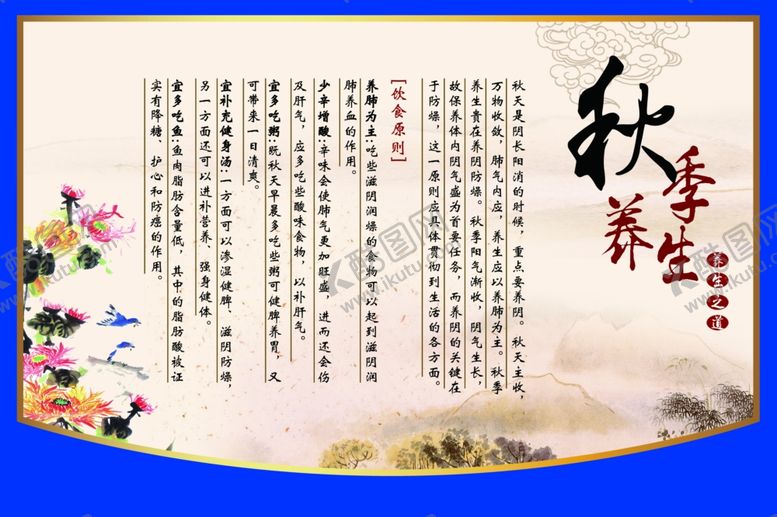 秋季养生
养生之道
秋天是阴长阳消的时候，重点要养阴。秋天主收，
万物收敛，肺气内应，养生应以养肺为主。秋季
养生贵在养阴防燥。秋季阳气渐收，阴气生长，
故保养体内阴气盛为首要任务，而养阴的关键在
于防燥，这一原则应具体贯彻到生活的各方面。
[饮食原则]
养肺为主:吃些滋阴润燥的食物可以起到滋阴润
肺养血的作用。
少辛增酸:辛味会使肺气更加旺盛，进而还会伤
及肝气，应多吃些酸味食物，以补肝气。
宜多吃粥:既秋天早晨多吃些粥可健脾养胃，又
可带来一日清爽。
宜补充健身汤:一方面可以渗湿健脾、滋阴防燥，
另一方面还可以进补营养、强身健体。
宜多吃鱼:鱼肉脂肪含量低，其中的脂肪酸被证
实有降糖、护心和防癌的作用。
酷图网
www.ikutu.com